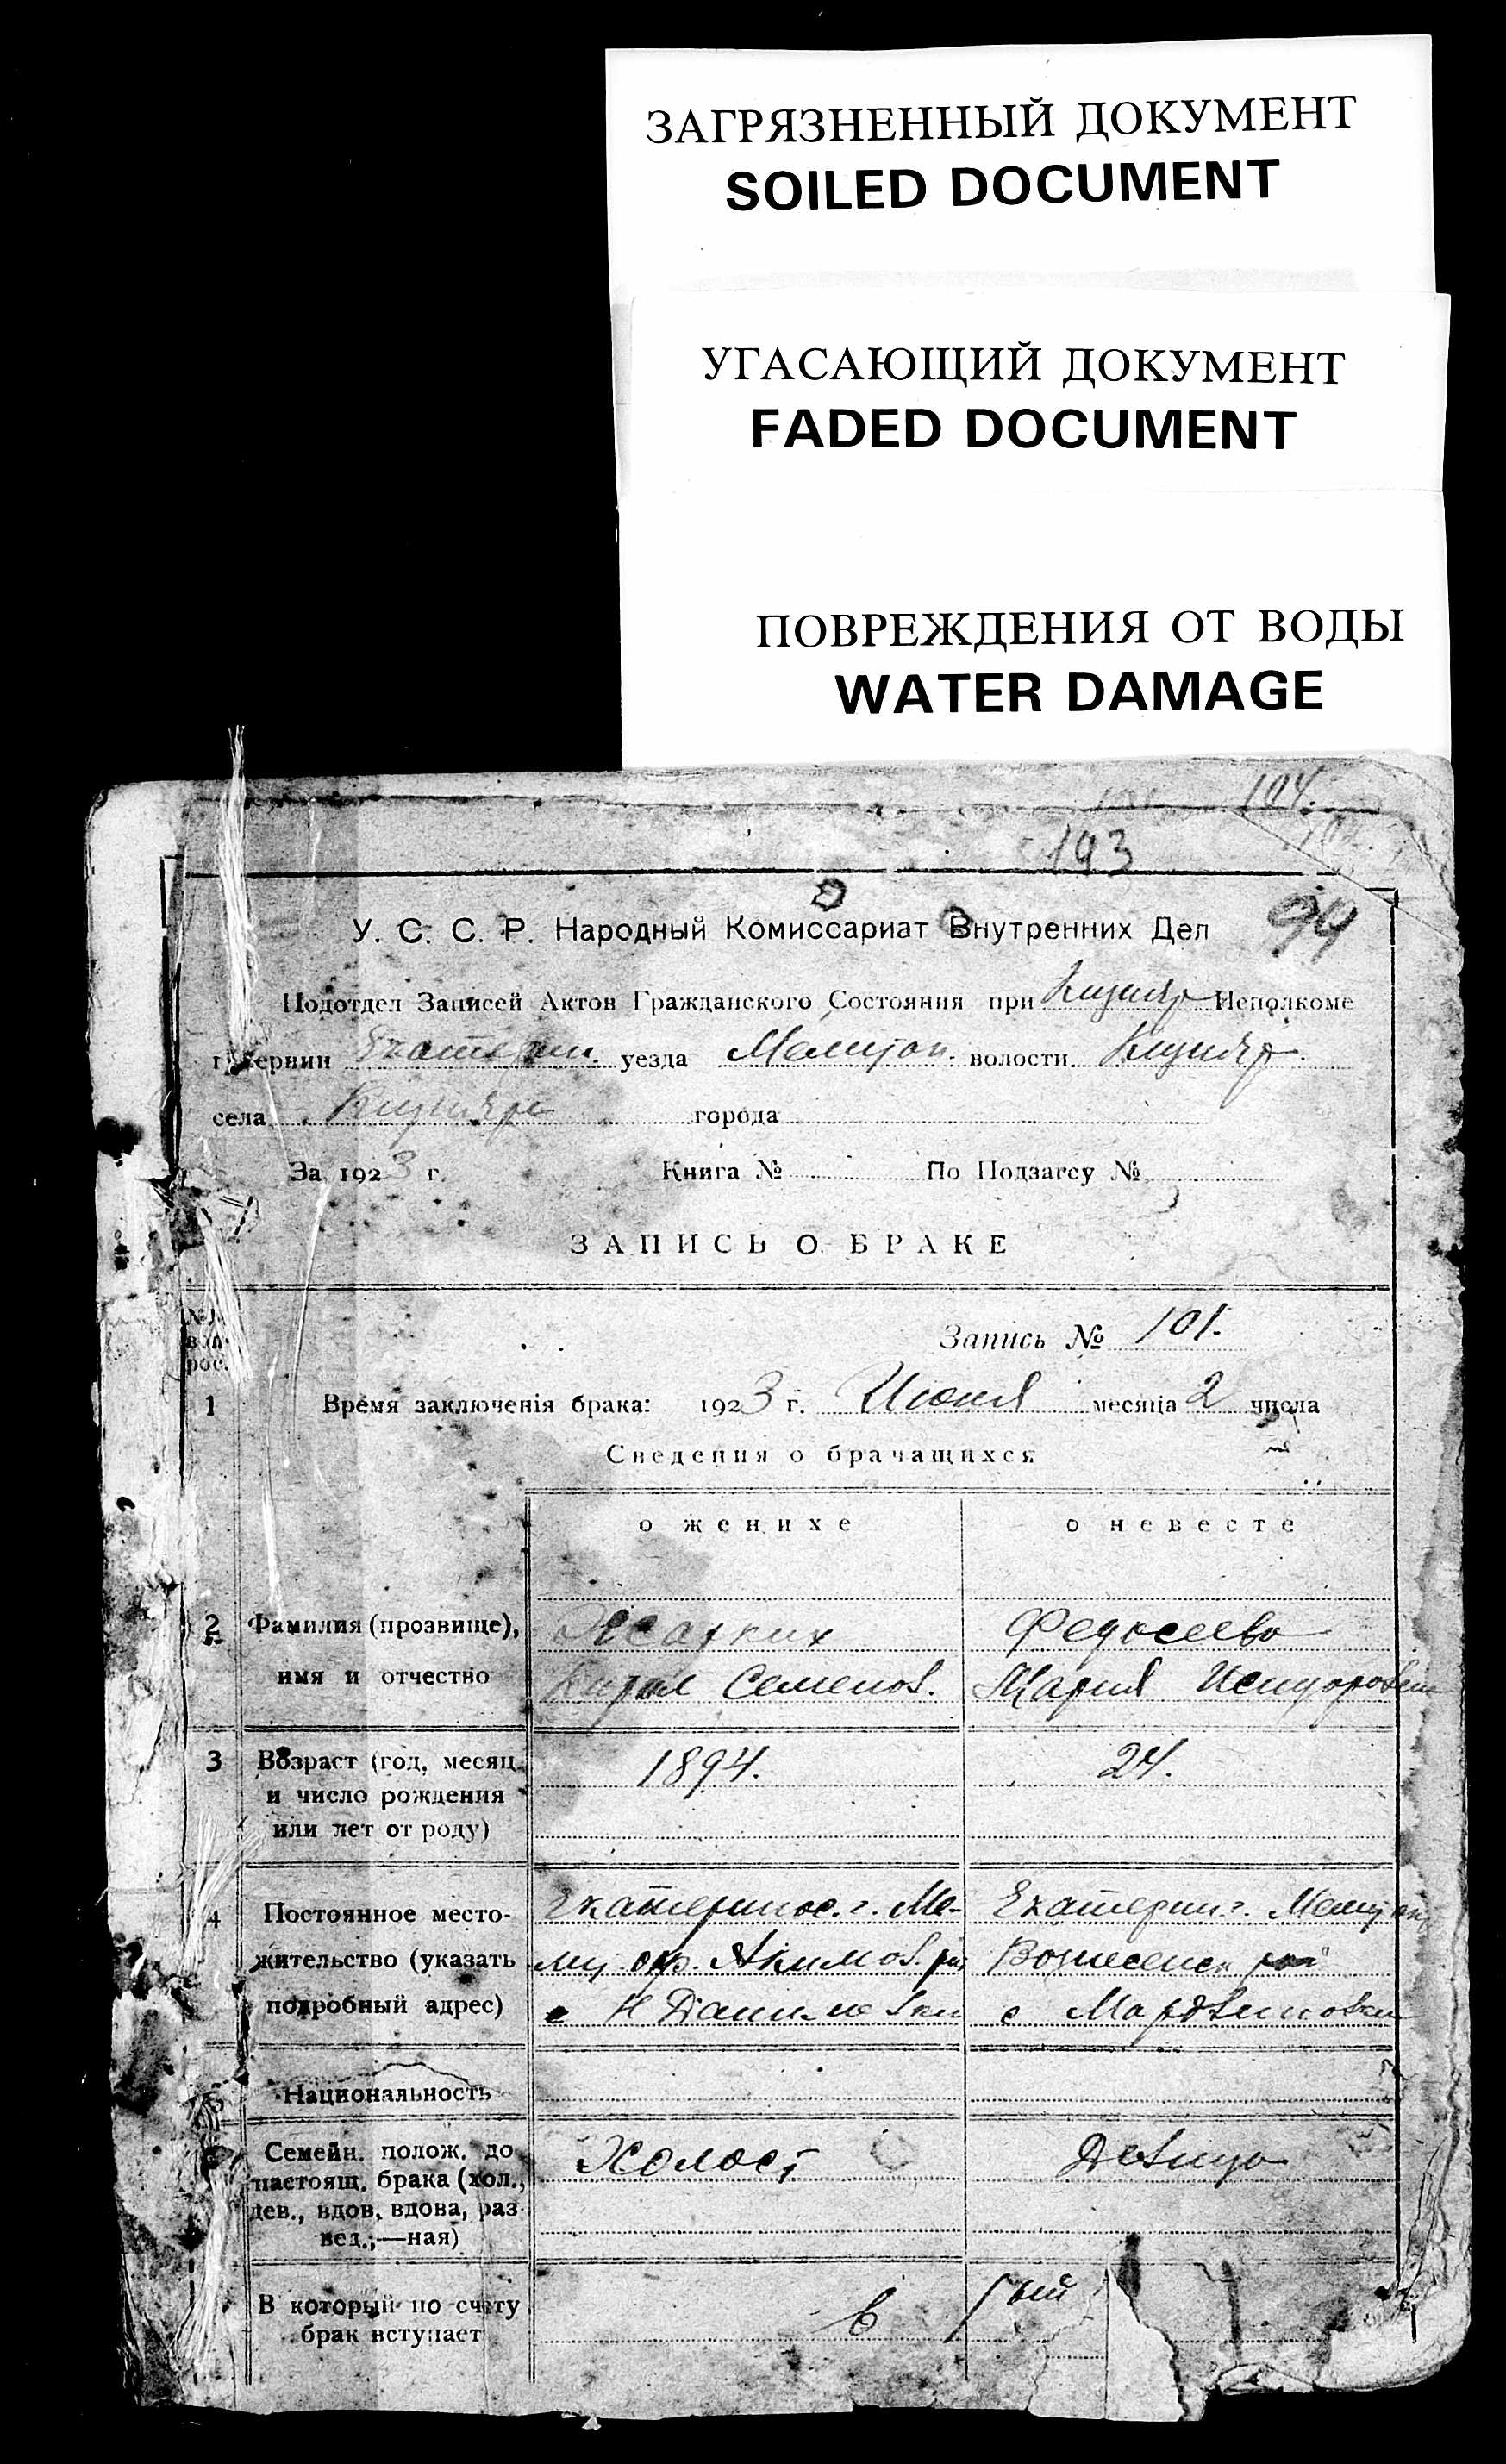 ЗАГРЯЗНЕННЫЙ ДОКУМЕНТ
SOILED DOCUMENT
УГАСАЮЩИЙ ДОКУМЕНТ
FADED DOCUMENT
ПОВРЕЖДЕНИЯ ОТ ВОДЫ
WATER DAMAGE
104.
193
94
У. С. С. Р. Народный Комиссариат Внутренних Дел
Подотдел Записей Актов Гражданского Состояния при Исполкоме
губернии Екатерин. уезда Мелитоп. волости
села города
За 1923 г. Книга № По Подзагсу №
ЗАПИСЬ О БРАКЕ
Запись № 101.
1 Время заключенія брака: 1923 г. Июня месяца 2 числа
Сведения о брачащихся
о женихе о невесте
2 Фамилия (прозвище), Федосеева
имя и отчество Семенов. Мария Исидоровна
3 Возраст (год, месяц 1894. 24.
и число рождения
или лет от роду)
4 Постоянное место- Екатеринос. г. Ме- Екатерин. г. Мелитоп
жительство (указать лит. окр. Акимов. Вознесенск
подробный адрес) с Н Даниловки с Мордвиновки
5 Национальность
Семейн. полож. до Холост Девица
настоящ. брака (хол.,
дев., вдов, вдова, раз-
вед.;—ная)
В который по счету в 1 ый
брак вступает